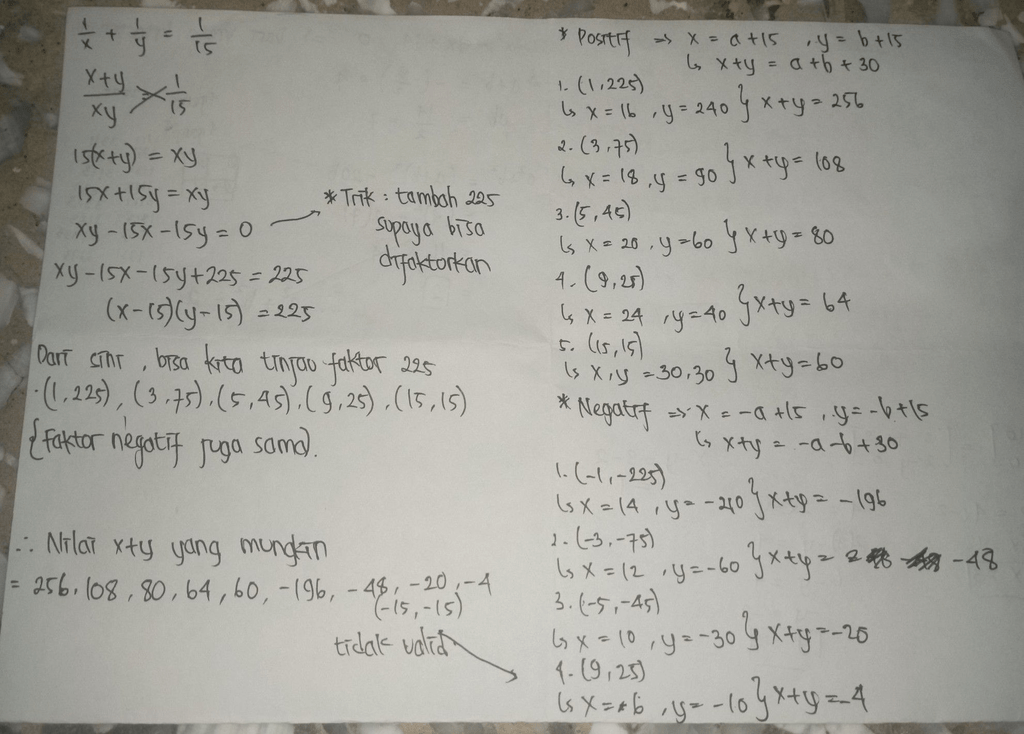 1/x + 1/y = 1/15
x+y/xy 1/15
15(x+y) = xy
15x+15y = xy
xy - 15x - 15y = 0
* Trik : tambah 225
supaya bisa
difaktorkan
xy - 15x - 15y + 225 = 225
(x-15)(y-15) = 225
Dari sini , bisa kita tinjau faktor 225
·(1,225), (3,75), (5,45), (9,25), (15,15)
{faktor negatif juga sama}.
∴ Nilai x+y yang mungkin
= 256, 108, 80, 64, 60, -196, -48, -20, -4
(-15,-15)
tidak valid
* Positif => x = a+15 , y = b+15
↳ x+y = a+b+30
1. (1,225)
↳ x = 16 , y = 240 } x+y = 256
2. (3,75)
↳ x = 18 , y = 90 } x+y = 108
3. (5,45)
↳ x = 20 , y = 60 } x+y = 80
4. (9,25)
↳ x = 24 , y = 40 } x+y = 64
5. (15,15)
↳ x,y = 30,30 } x+y = 60
* Negatif => x = -a+15 , y = -b+15
↳ x+y = -a-b+30
1. (-1,-225)
↳ x = 14 , y = -210 } x+y = -196
2. (-3,-75)
↳ x = 12 , y = -60 } x+y = -48
3. (-5,-45)
↳ x = 10 , y = -30 } x+y = -20
4. (9,25)
↳ x = 6 , y = -10 } x+y = -4